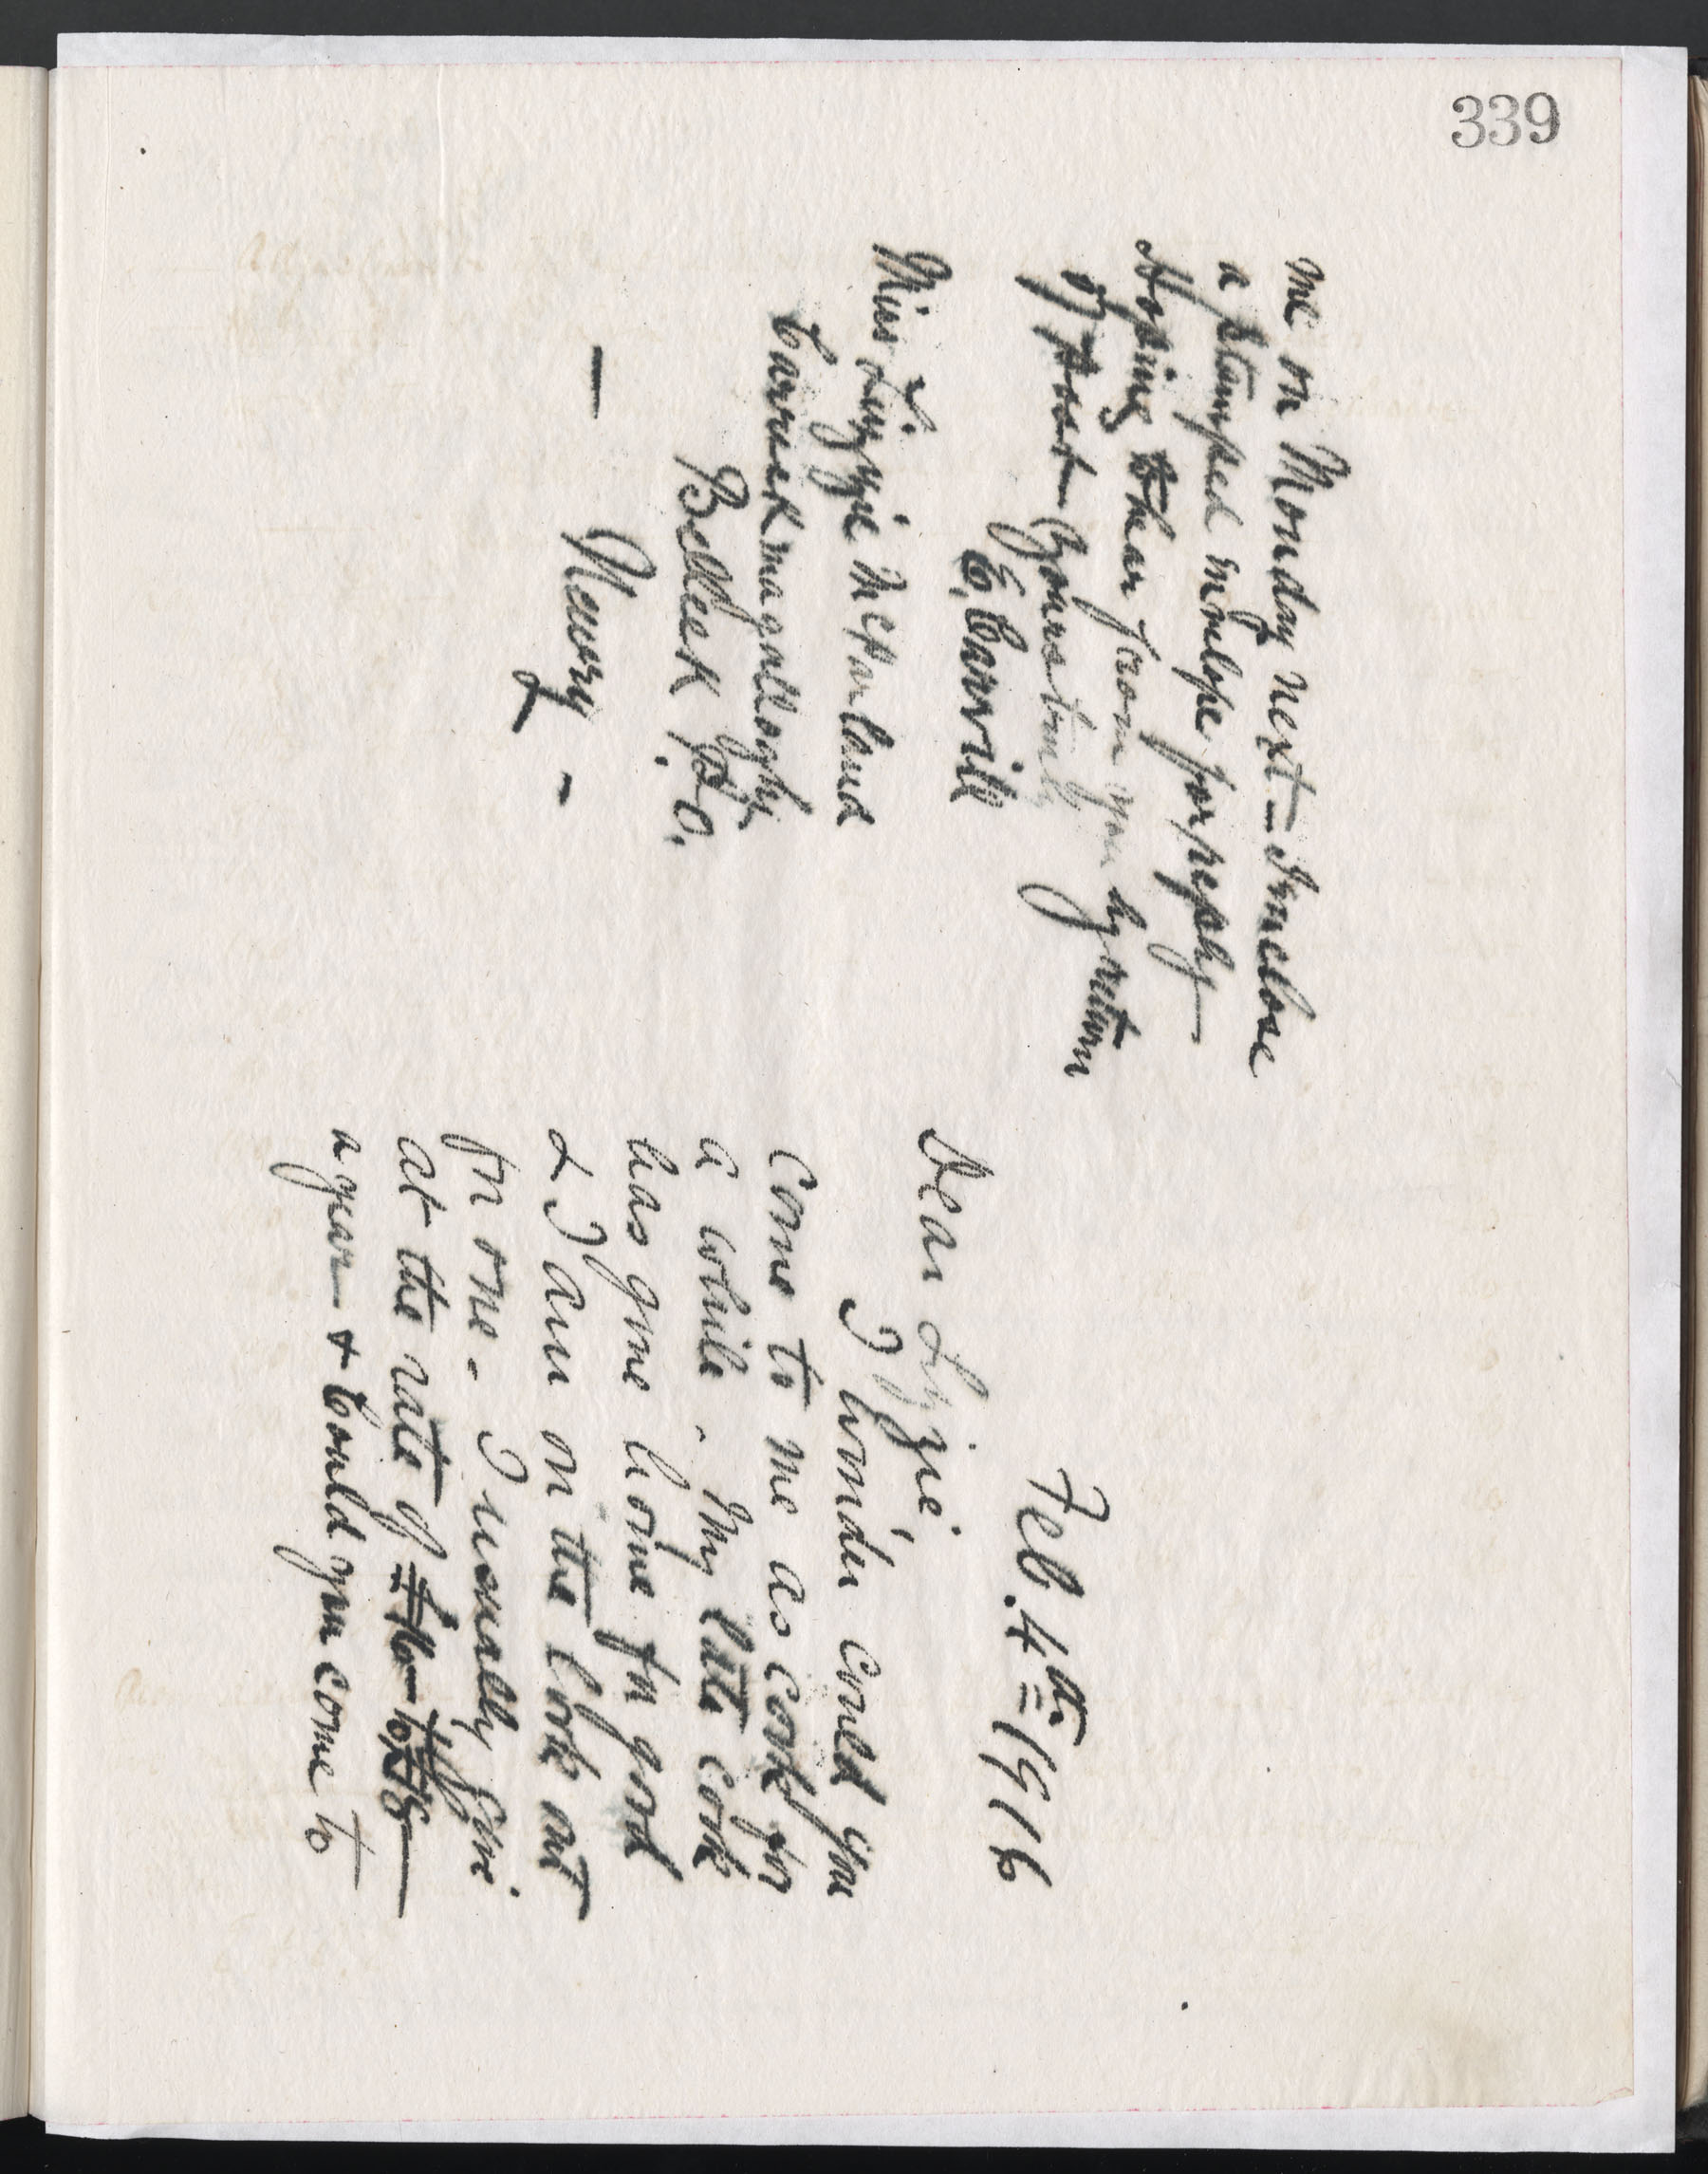 339
Feb. 4th = 1916
Dear Lizzie,
I wonder could you
come to me as cook for
a while. My late cook
has gone home for good
& I am on the look out
for one - I usually give
at the rate of £16 to £18
a year & Could you come to
me on Monday next - I inclose
a stamped envelope for reply -
Hoping to hear from you by return
of post - Yours truly
E. Carvill
Miss Lizzie McParland
Carrickmagalloghy
Belleek P.O.
- Newry -